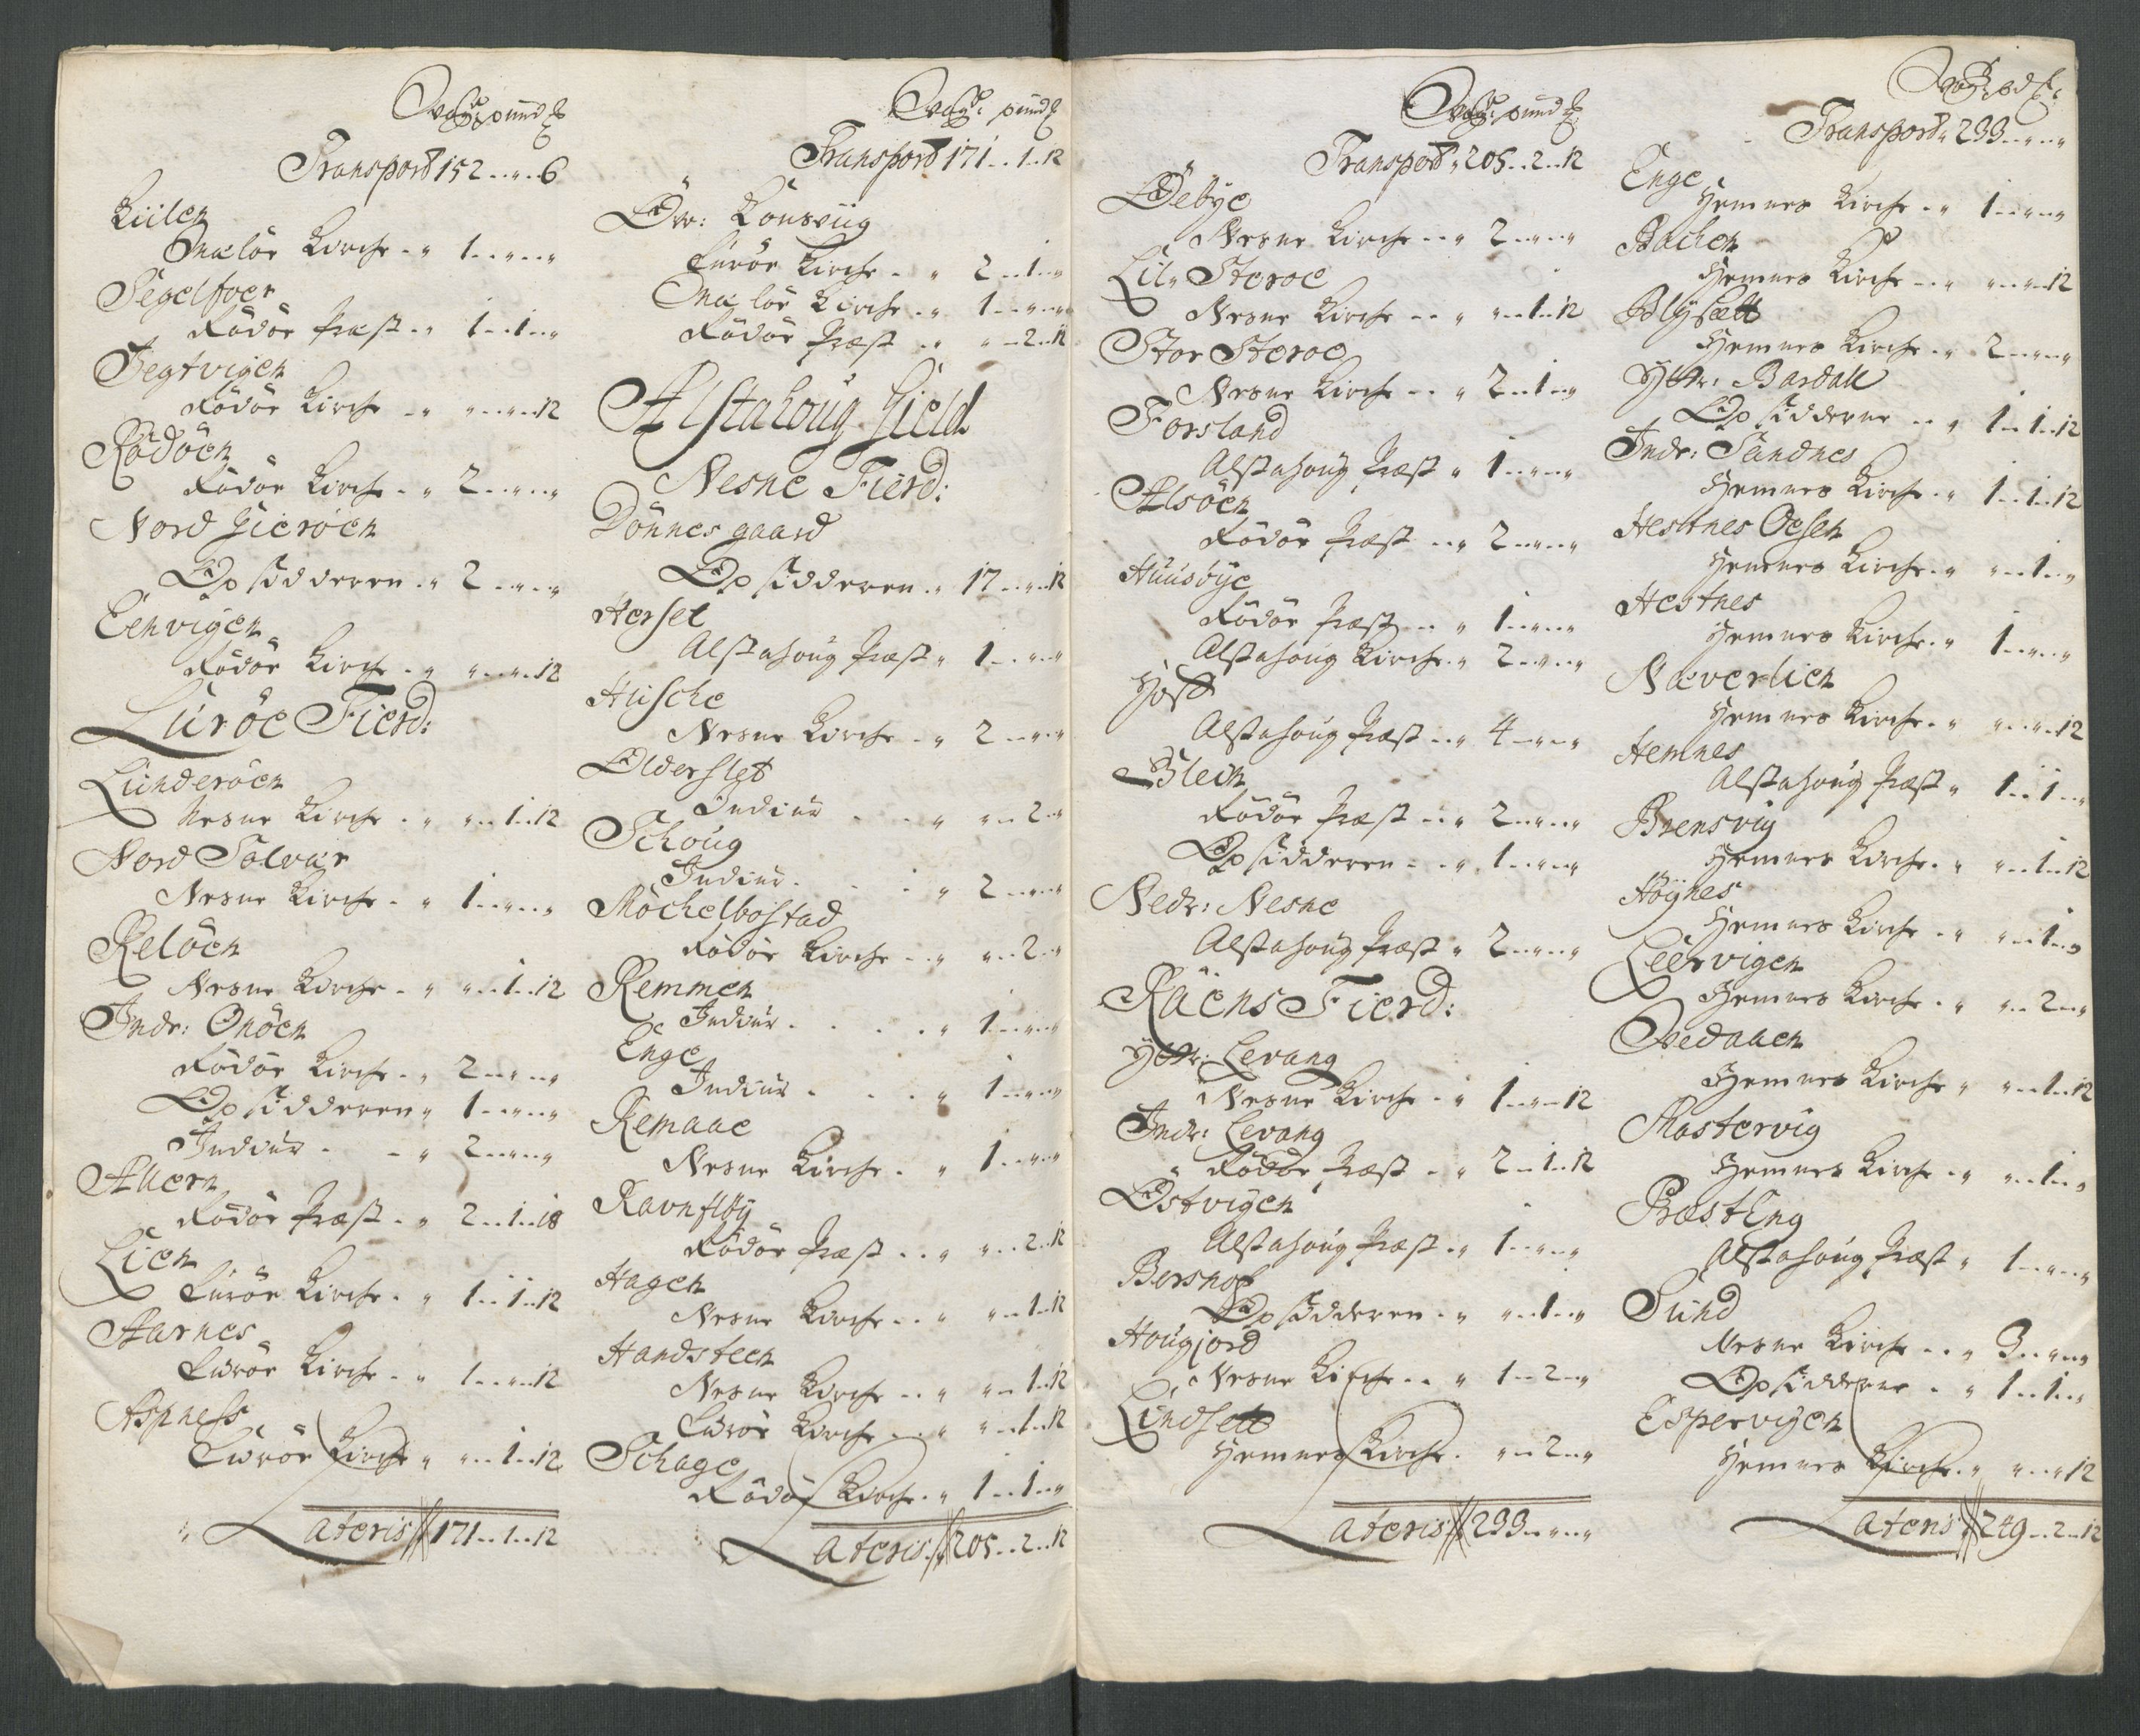 Wog: pund ℔
Transport 152..„..6
Kiilen
Mælör Kirche .. „ 1..„..„
Segelfoer
Rödöe Præst .. „ 1..1..„
Jegtvigen
Rödöe Kirche .. „ „..„..12
Rödöen
Rödöe Kirche .. „ 2..„..„
Nord Gieröen
Opsidderen .. „ 2..„..„
Eenvigen
Rödöe Kirche .. „ „..„..12
Luröe Fierd:
Lunderöen
Nesne Kirche .. „ „..1..12
Nord Solvær
Nesne Kirche .. „ 1..„..„
Relöen
Nesne Kirche .. „ „..1..12
Indr: Onöen
Rödöe Kirche .. „ 2..„..„
Opsidderen „ 1..„..„
Indiur . .. „ 2..„..„
Alleren
Rödöe Præst .. „ 2..1..18
Lien
Luröe Kirche .. „ 1..1..12
Aarnes
Luröe Kirche .. „ 1..„..12
Aspness
Luröe Kirche „ „..1..12
Lateris 171..1..12

Wog: pund ℔
Transport 171..1..12
Öv: Konsviig
Luröe Kirche .. „ 2..1..„
Mælör Kirche .. „ 1..„..„
Rödöe Præst .. „ „..2..12
Alstahoug Gield
Nesne Fierd:
Dönnes gaard
Opsidderen .. 17..„..12
Hersel
Alstahoug Præst „ 1..„..„
Husche
Nesne Kirche .. „ 2..„..„
Olderslet
Indiur . . . „ „..2..„
Schoug
Indiur . . . „ 2..„..„
Möchelbostad
Rödöe Kirche .. „ „..2..„
Remmen
Indiur . . . . „ 1..„..„
Enge
Indiur . . . „ 1..„..„
Remaae
Nesne Kirche .. „ 1..„..„
Ravnfløy
Rödöe Præst .. „ „..2..12
Hagen
Nesne Kirche .. „ „..1..12
Handsteen
Nesne Kirche .. „ „..1..12
Luröe Kirche .. „ „..1..12
Schage
Rödöe Kirche .. „ 1..1..„
Lateris 205..2..12

Wog: pund ℔
Transport „ 205..2..12
Öebye
Nesne Kirche .. „ 2..„..„
Lil. Steroe
Nesne Kirche .. „ „..1..12
Stor Steroe
Nesne Kirche .. „ 2..1..„
Forsland
Alstahoug Præst „ 1..„..„
Alsöen
Rödöe Præst .. „ 2..„..„
Huusbye
Rödöe Præst .. „ 1..„..„
Alstahoug Kirche .. „ 2..„..„
Höst
Alstahoug Præst .. „ 4..„..„
Slein
Rödöe Præst .. „ 2..„..„
Opsidderen .. „ 1..„..„
Nedr: Nesne
Alstahoug Præst „ 2..„..„
Räens Fierd:
Yttr: Levang
Nesne Kirche .. „ 1..„..12
Indr: Levang
Rödöe Præst .. „ 2..1..12
Östvigen
Alstahoug Præst .. „ 1..„..„
Bersnof
Opsidderen .. „ „..1..„
Hougjord
Nesne Kirche .. „ 1..2..„
Lundsett
Hemnes Kirche . „..2..„
Lateris 233..„..„

Wog: pd ℔:
Transport „ 233..„..„
Enge
Hemnes Kirche .. „ 1..„..„
Bachen
Hemnes Kirche .. „ „..„..12
Blysett
Hemnes Kirche .. „ 2..„..„
Yttr: Bardall
Opsidderne .. „ 1..1..12
Indr: Sandnes
Hemnes Kirche .. „ 1..1..12
Hestnes Oesen
Hemnes Kirche .. „ „..1..„
Hestnes
Hemnes Kirche .. „ 1..„..„
Næverlien
Hemnes Kirche .. „ „..„..12
Hemnes
Alstahoug Præst „ 1..1..„
Brensvig
Hemnes Kirche .. „ „..1..12
Höynes
Hemnes Kirche .. „ „..1..„
Leervigen
Hemnes Kirche .. „ „..2..„
Vedaaen
Hemnes Kirche „ „..1..12
Mastervig
Hemnes Kirche .. „ „..1..„
PræstEng
Alstahoug Præst „ 1..„..„
Sund
Nesne Kirche .. „ 3..„..„
Opsidderne .. „ 1..1..„
Espervigen
Hemnes Kirche .. „ „..„..12
Lateris 249..2..12